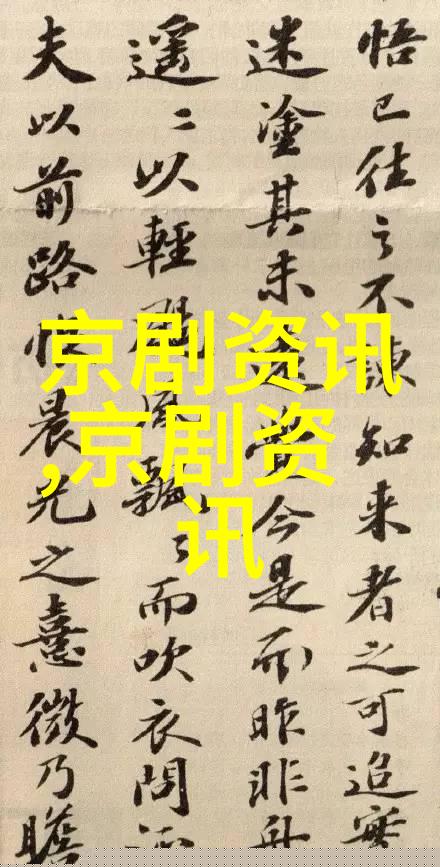 悟已往之不諫知来者之可追實
迷塗其未遠覺今是而昨非舟
遥々以輕颺風飄々而吹衣問
夫以前路恨晨光之熹微乃瞻
京剧资讯
,京剧资
讯